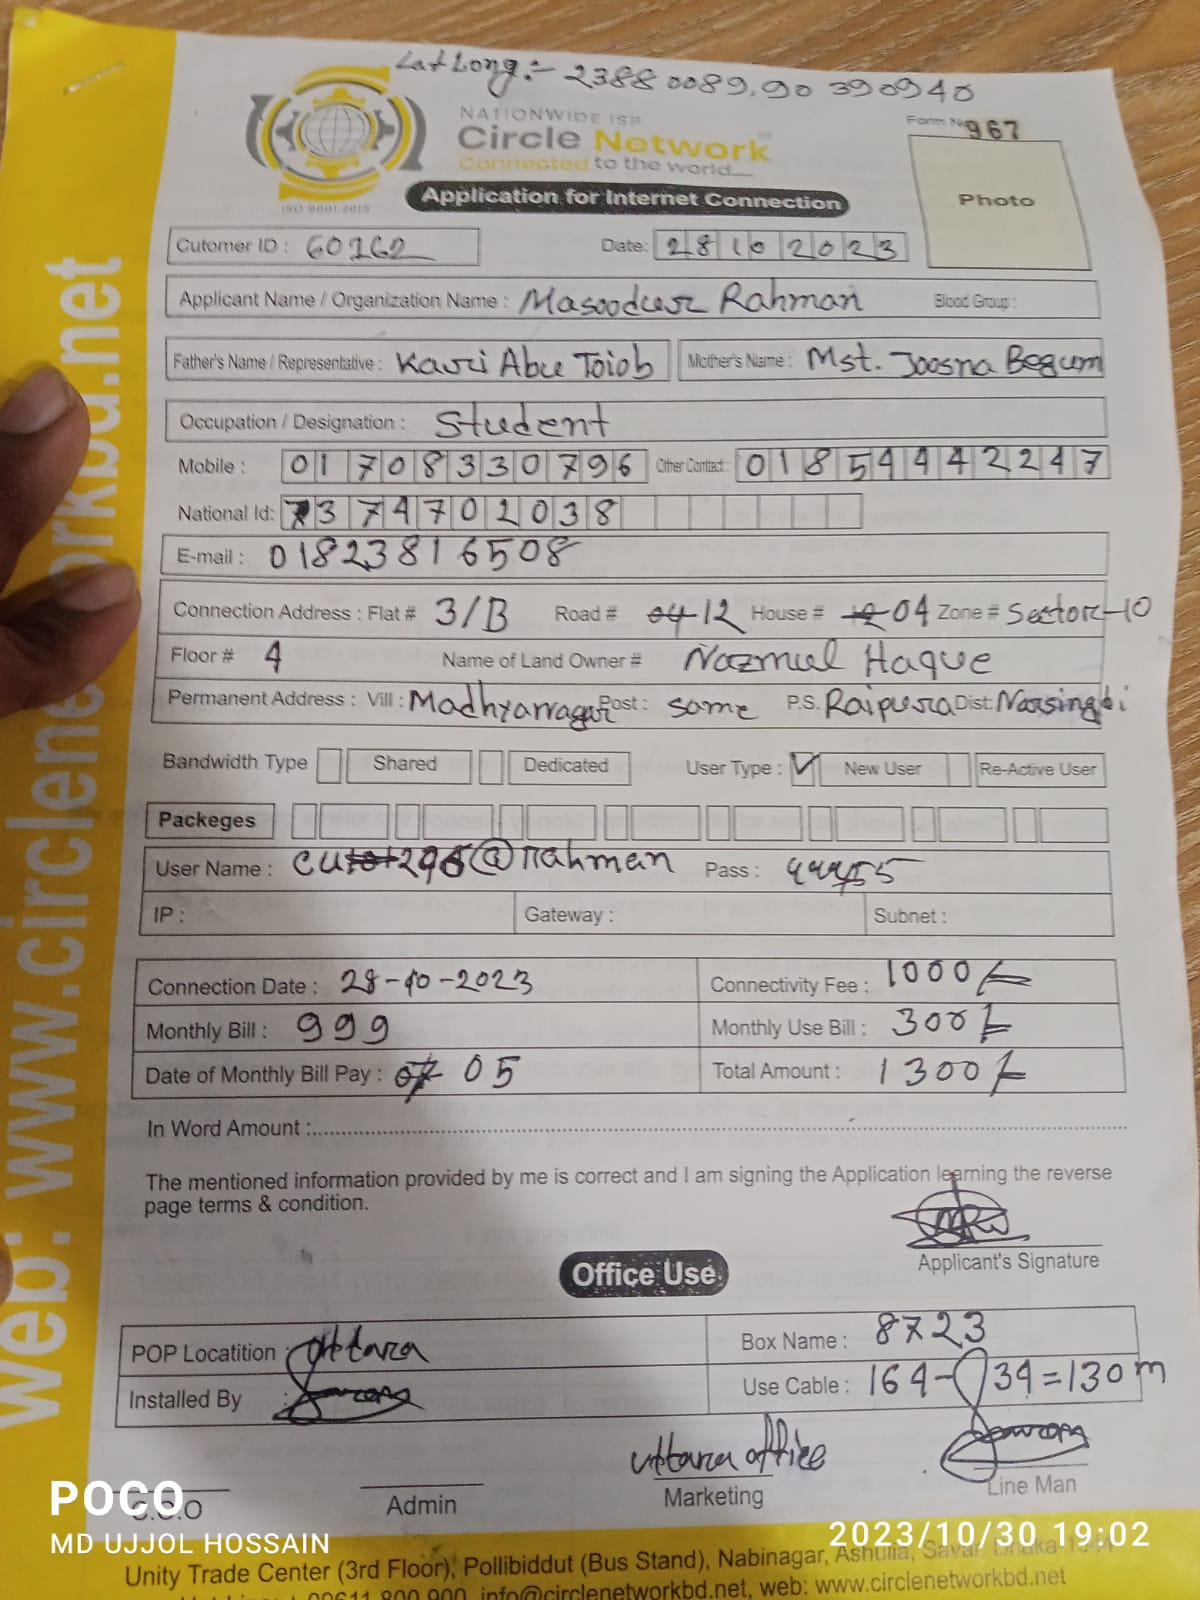 Lat Long :- 23880089, 90390940
NATIONWIDE ISP
Circle Network
Connected to the world....
ISO 9001:2015
Form No 967
Photo
Application for Internet Connection
Cutomer ID : 60262 Date: 28102023
Applicant Name / Organization Name : Masoodur Rahman Blood Group :
Father's Name / Representative : Kawri Abu Toiob Mother's Name : Mst. Joosna Begum
Occupation / Designation : Student
Mobile : 01708330796 Other Contact: 01854442247
National Id: 7374702038
E-mail : 01823816508
Connection Address : Flat # 3/B Road # 04 12 House # 12 04 Zone # Sector-10
Floor # 4 Name of Land Owner # Nazmul Haque
Permanent Address : Vill : Madhyanagar Post : same P.S. Raipura Dist: Narsingbi
Bandwidth Type Shared Dedicated User Type : ✓ New User Re-Active User
Packeges
User Name : @rahman Pass :
IP : Gateway : Subnet :
Connection Date : 28-10-2023 Connectivity Fee : 1000/=
Monthly Bill : 999 Monthly Use Bill : 300/=
Date of Monthly Bill Pay : 07 05 Total Amount : 1300/=
In Word Amount :
The mentioned information provided by me is correct and I am signing the Application learning the reverse
page terms & condition.
Applicant's Signature
Office Use
POP Locatition : Uttara Box Name : 8723
Installed By : Use Cable : 164-34=130m
Uttara office
C.O.O Admin Marketing Line Man
Unity Trade Center (3rd Floor), Pollibiddut (Bus Stand), Nabinagar, Ashulia, Savar, Dhaka-
09611 800 900, info@circlenetworkbd.net, web: www.circlenetworkbd.net
web: www.circlenetworkbd.net
POCO
MD UJJOL HOSSAIN
2023/10/30 19:02